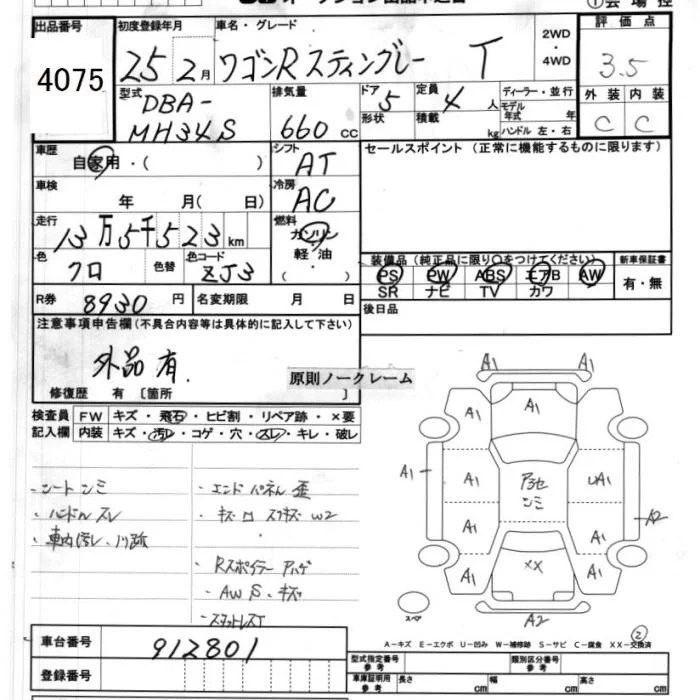 出品番号 4075
初度登録年月 25 2月
車名・グレード ワゴンR スティングレー T
2WD ・ 4WD
評価点 3.5
型式 DBA- MH34S
排気量 660 cc
ドア 5
形状
定員 4 人
積載 kg
ディーラー・並行
モデル年式 年
ハンドル 左・右
外装 内装
C C
車歴 自家用・( )
シフト AT
セールスポイント(正常に機能するものに限ります)
車検 年 月( 日)
冷房 AC
走行 13万5千523km
燃料 ガソリン・軽油 ( )
色 クロ
色替
色コード ZJ3
装備品(純正品に限り○をつけてください)
PS PW ABS エアB AW
SR ナビ TV カワ
新車保証書 有・無
R券 8930円
名変期限 月 日
後日品
注意事項申告欄(不具合内容等は具体的に記入して下さい)
外品 有.
原則ノークレーム
修復歴 有 〔箇所
検査員記入欄
FW キズ・飛石・ヒビ割・リペア跡・×要
内装 キズ・汚れ・コゲ・穴・スレ・キレ・破レ
・シートシミ
・ハンドルスレ
・車内汚レ・
・エンドパネル歪
・Rスポイラーハゲ
・AW S・キズ
・スタットレスT
A1 A1
A1 A1 A1
A1 A1 UA1
A1 A1 A2
A1 XX A1
A2
シミ
スペア
2
A-キズ E-エクボ U-凹み W-補修跡 S-サビ C-腐食 XX-交換済
車台番号 912801
登録番号
型式指定番号 参考
類別区分番号 参考
車庫証明用 参考 長さ cm 幅 cm 高さ cm